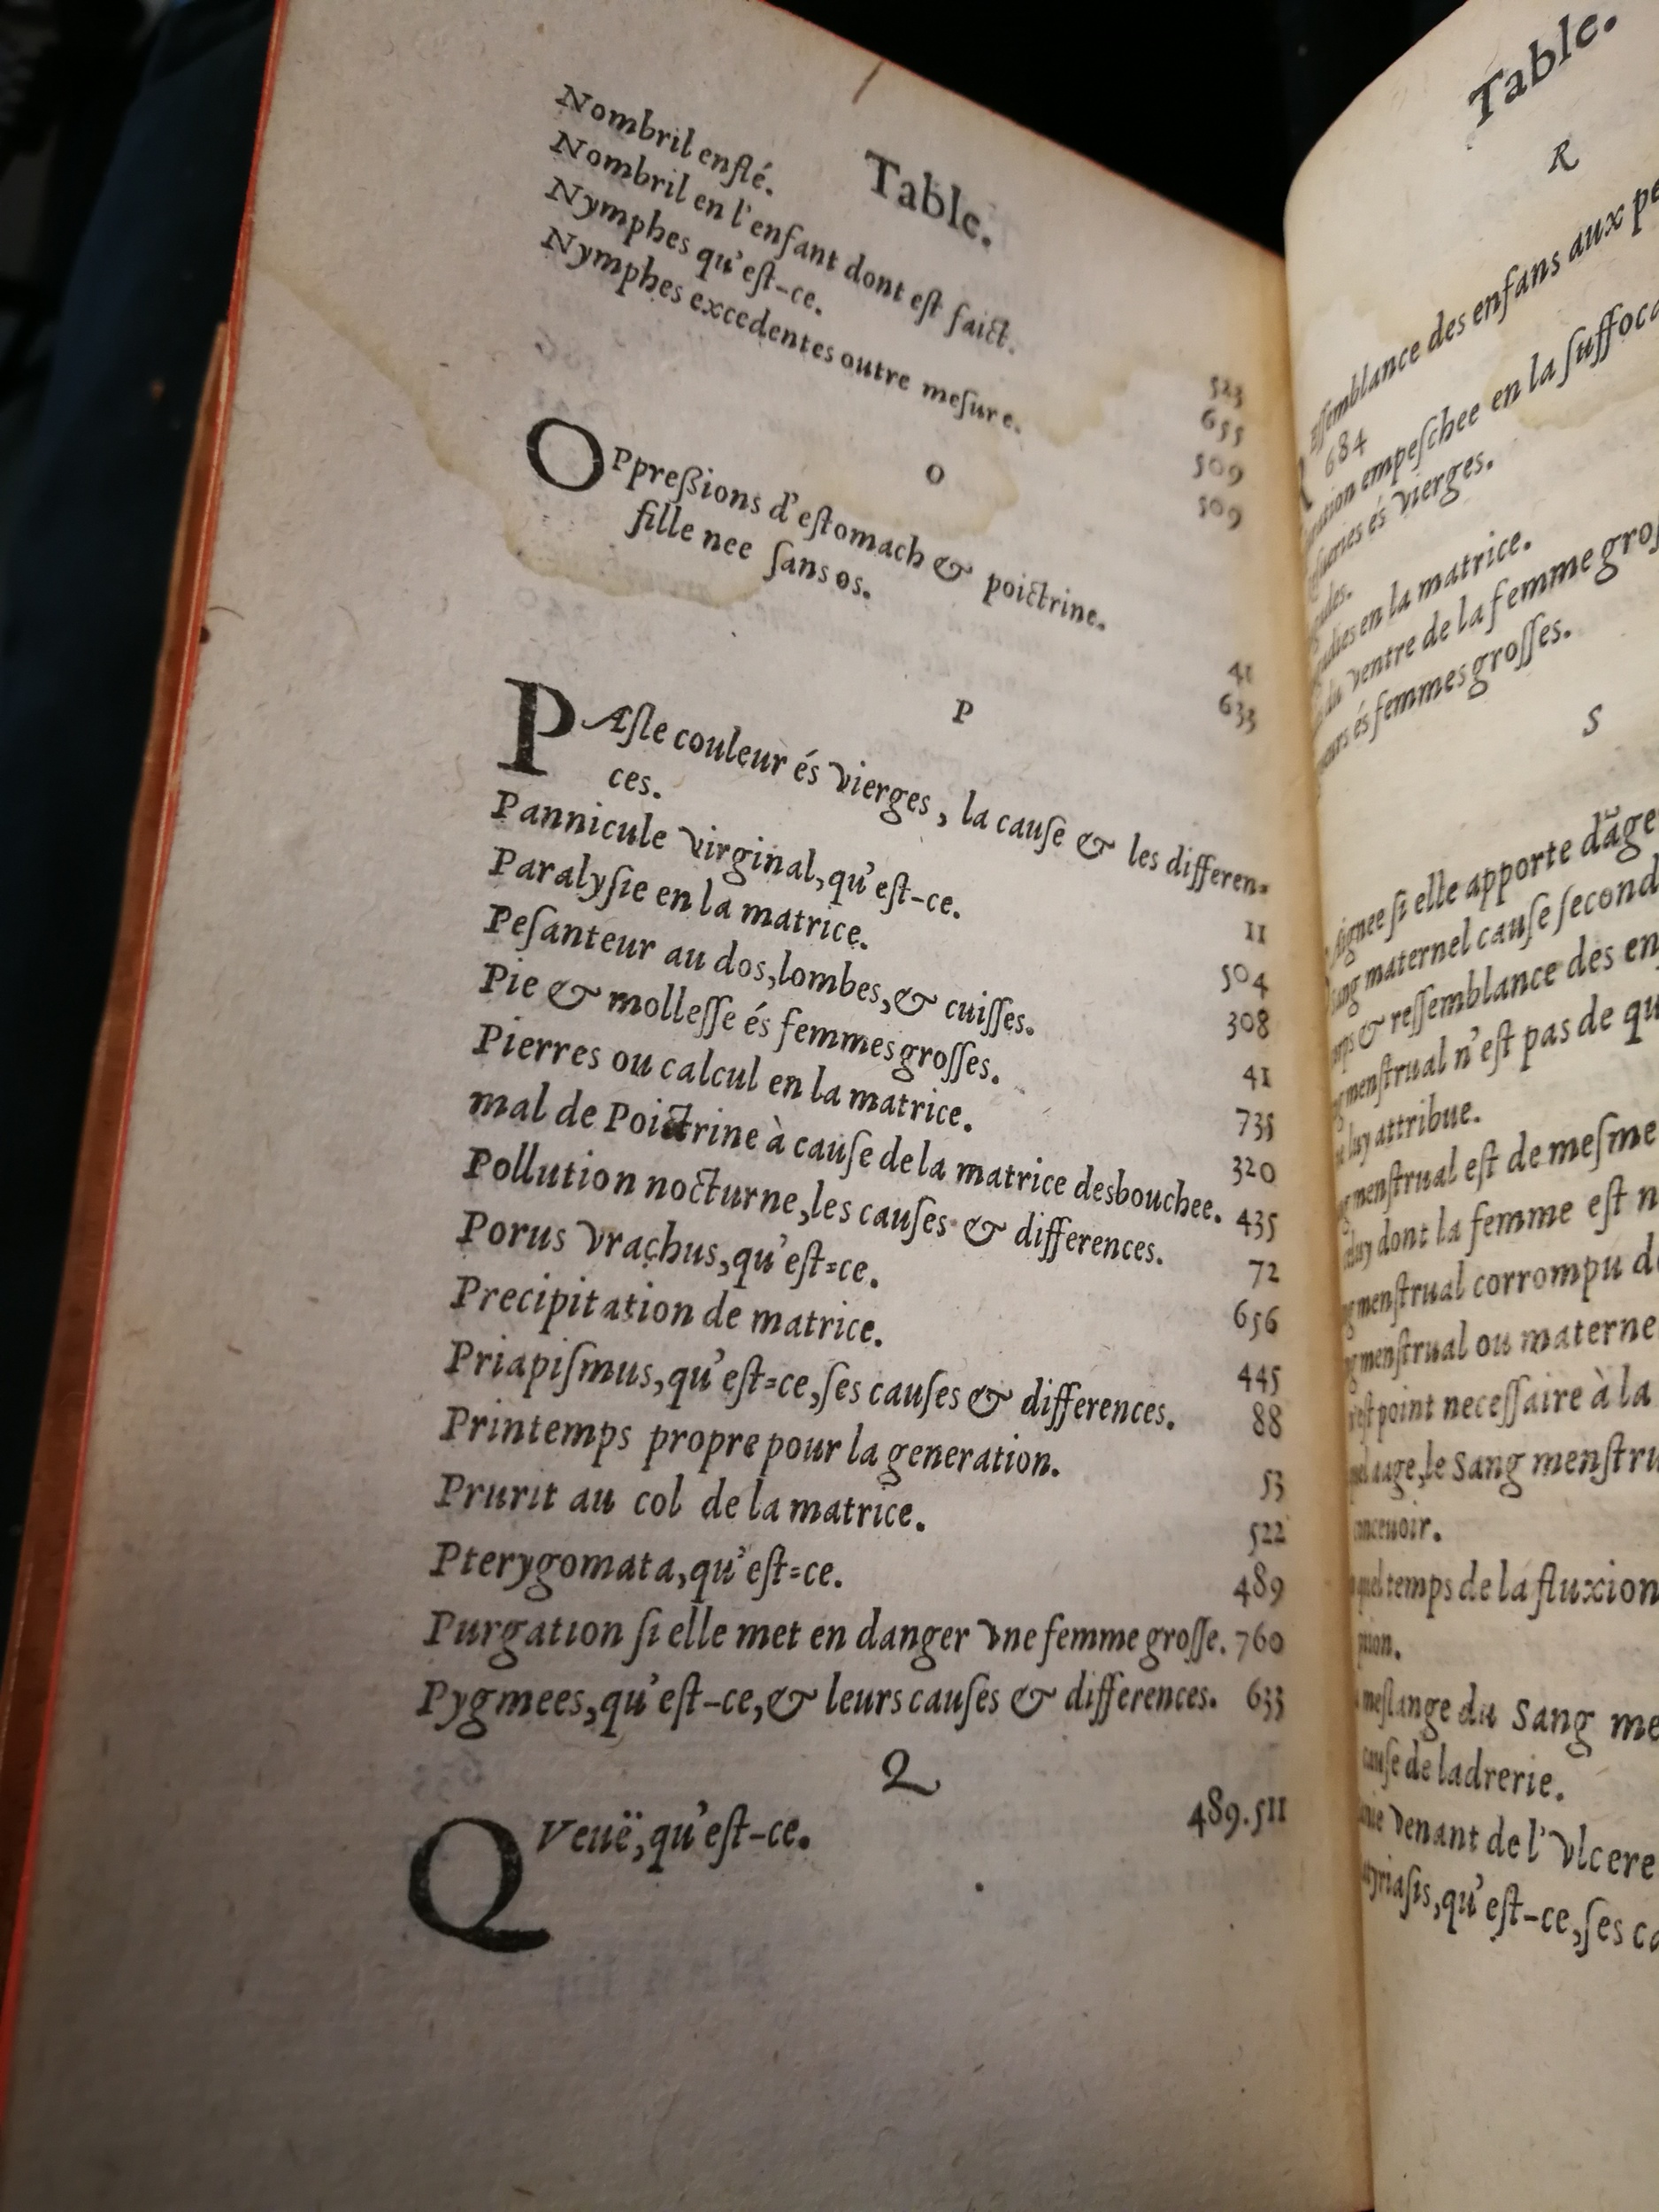 Table.
Nombril enflé. 523
Nombril en l'enfant dont est faict. 655
Nymphes qu'eſt-ce. 509
Nymphes excedentes outre meſure. 509
O
OPpreßions d'eſtomach & poictrine. 41
fille nee ſans os. 633
P
PAſle couleur és vierges, la cauſe & les differen-
ces. 11
Pannicule virginal, qu'eſt-ce. 504
Paralyſie en la matrice. 308
Peſanteur au dos, lombes, & cuiſſes. 41
Pie & molleſſe és femmes groſſes. 735
Pierres ou calcul en la matrice. 320
mal de Poictrine à cauſe de la matrice desbouchee. 435
Pollution nocturne, les cauſes & differences. 72
Porus vrachus, qu'eſt-ce. 656
Precipitation de matrice. 445
Priapiſmus, qu'eſt-ce, ſes cauſes & differences. 88
Printemps propre pour la generation. 53
Prurit au col de la matrice. 522
Pterygomata, qu'eſt-ce. 489
Purgation ſi elle met en danger vne femme groſſe. 760
Pygmees, qu'eſt-ce, & leurs cauſes & differences. 633
Q
QVeuë, qu'eſt-ce. 489.511
Table.
R
des enfans aux
684
empeſchee en la
és vierges.
en la matrice.
ventre de la femme
és femmes groſſes.
S
ſi elle apporte
maternel cauſe
& reſſemblance des
menſtrual n'eſt pas de
luy attribue.
menſtrual eſt de meſme
dont la femme eſt
menſtrual corrompu
menſtrual ou
point neceſſaire à la
le Sang
temps de la fluxion
du Sang
de ladrerie.
venant de l'vlcere
qu'eſt-ce, ſes